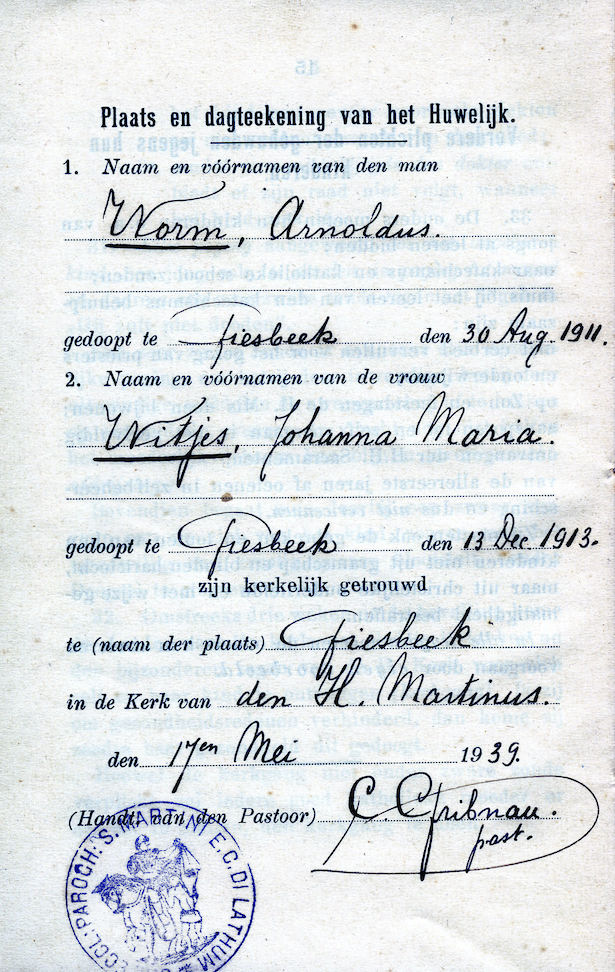 Plaats en dagteekening van het Huwelijk.
1. Naam en vóórnamen van den man
Worm, Arnoldus.
gedoopt te Giesbeek den 30 Aug. 1911.
2. Naam en vóórnamen van de vrouw
Witjes, Johanna Maria.
gedoopt te Giesbeek den 13 Dec 1913.
zijn kerkelijk getrouwd
te (naam der plaats) Giesbeek
in de Kerk van den H. Martinus.
den 17en Mei 1939.
(Handt. van den Pastoor) C. Gribnau.
past.
ECCL: PAROCH: S. MARTINI E. C. DI LATHUM